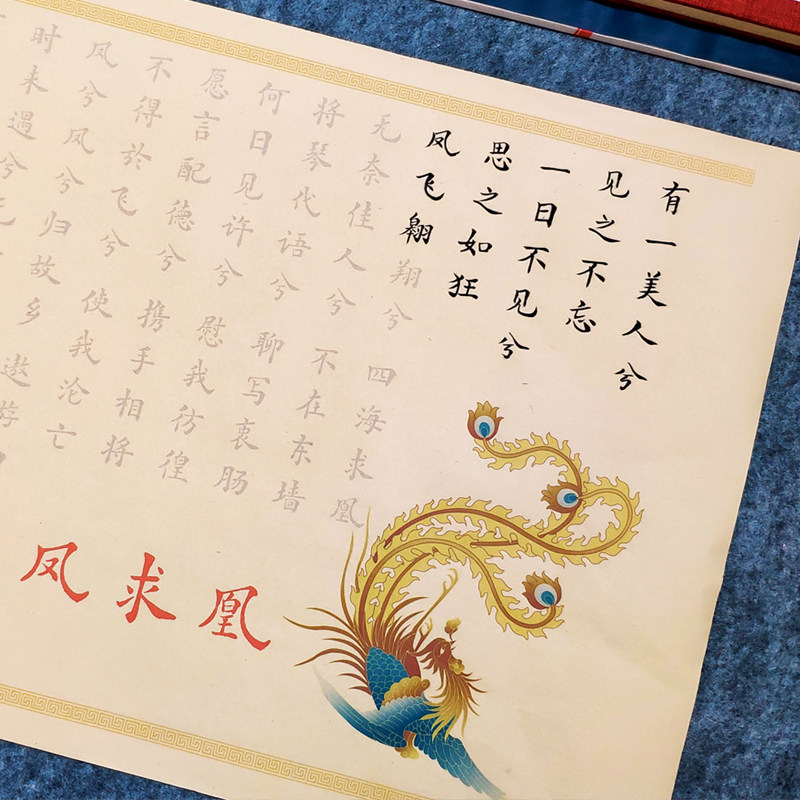 有一美人兮
见之不忘
一日不见兮
思之如狂
凤飞翱翔兮 四海求凰
无奈佳人兮 不在东墙
将琴代语兮 聊写衷肠
何日见许兮 慰我彷徨
愿言配德兮 携手相将
不得於飞兮 使我沦亡
凤兮凤兮归故乡 遨游
时未遇兮无
凤求凰